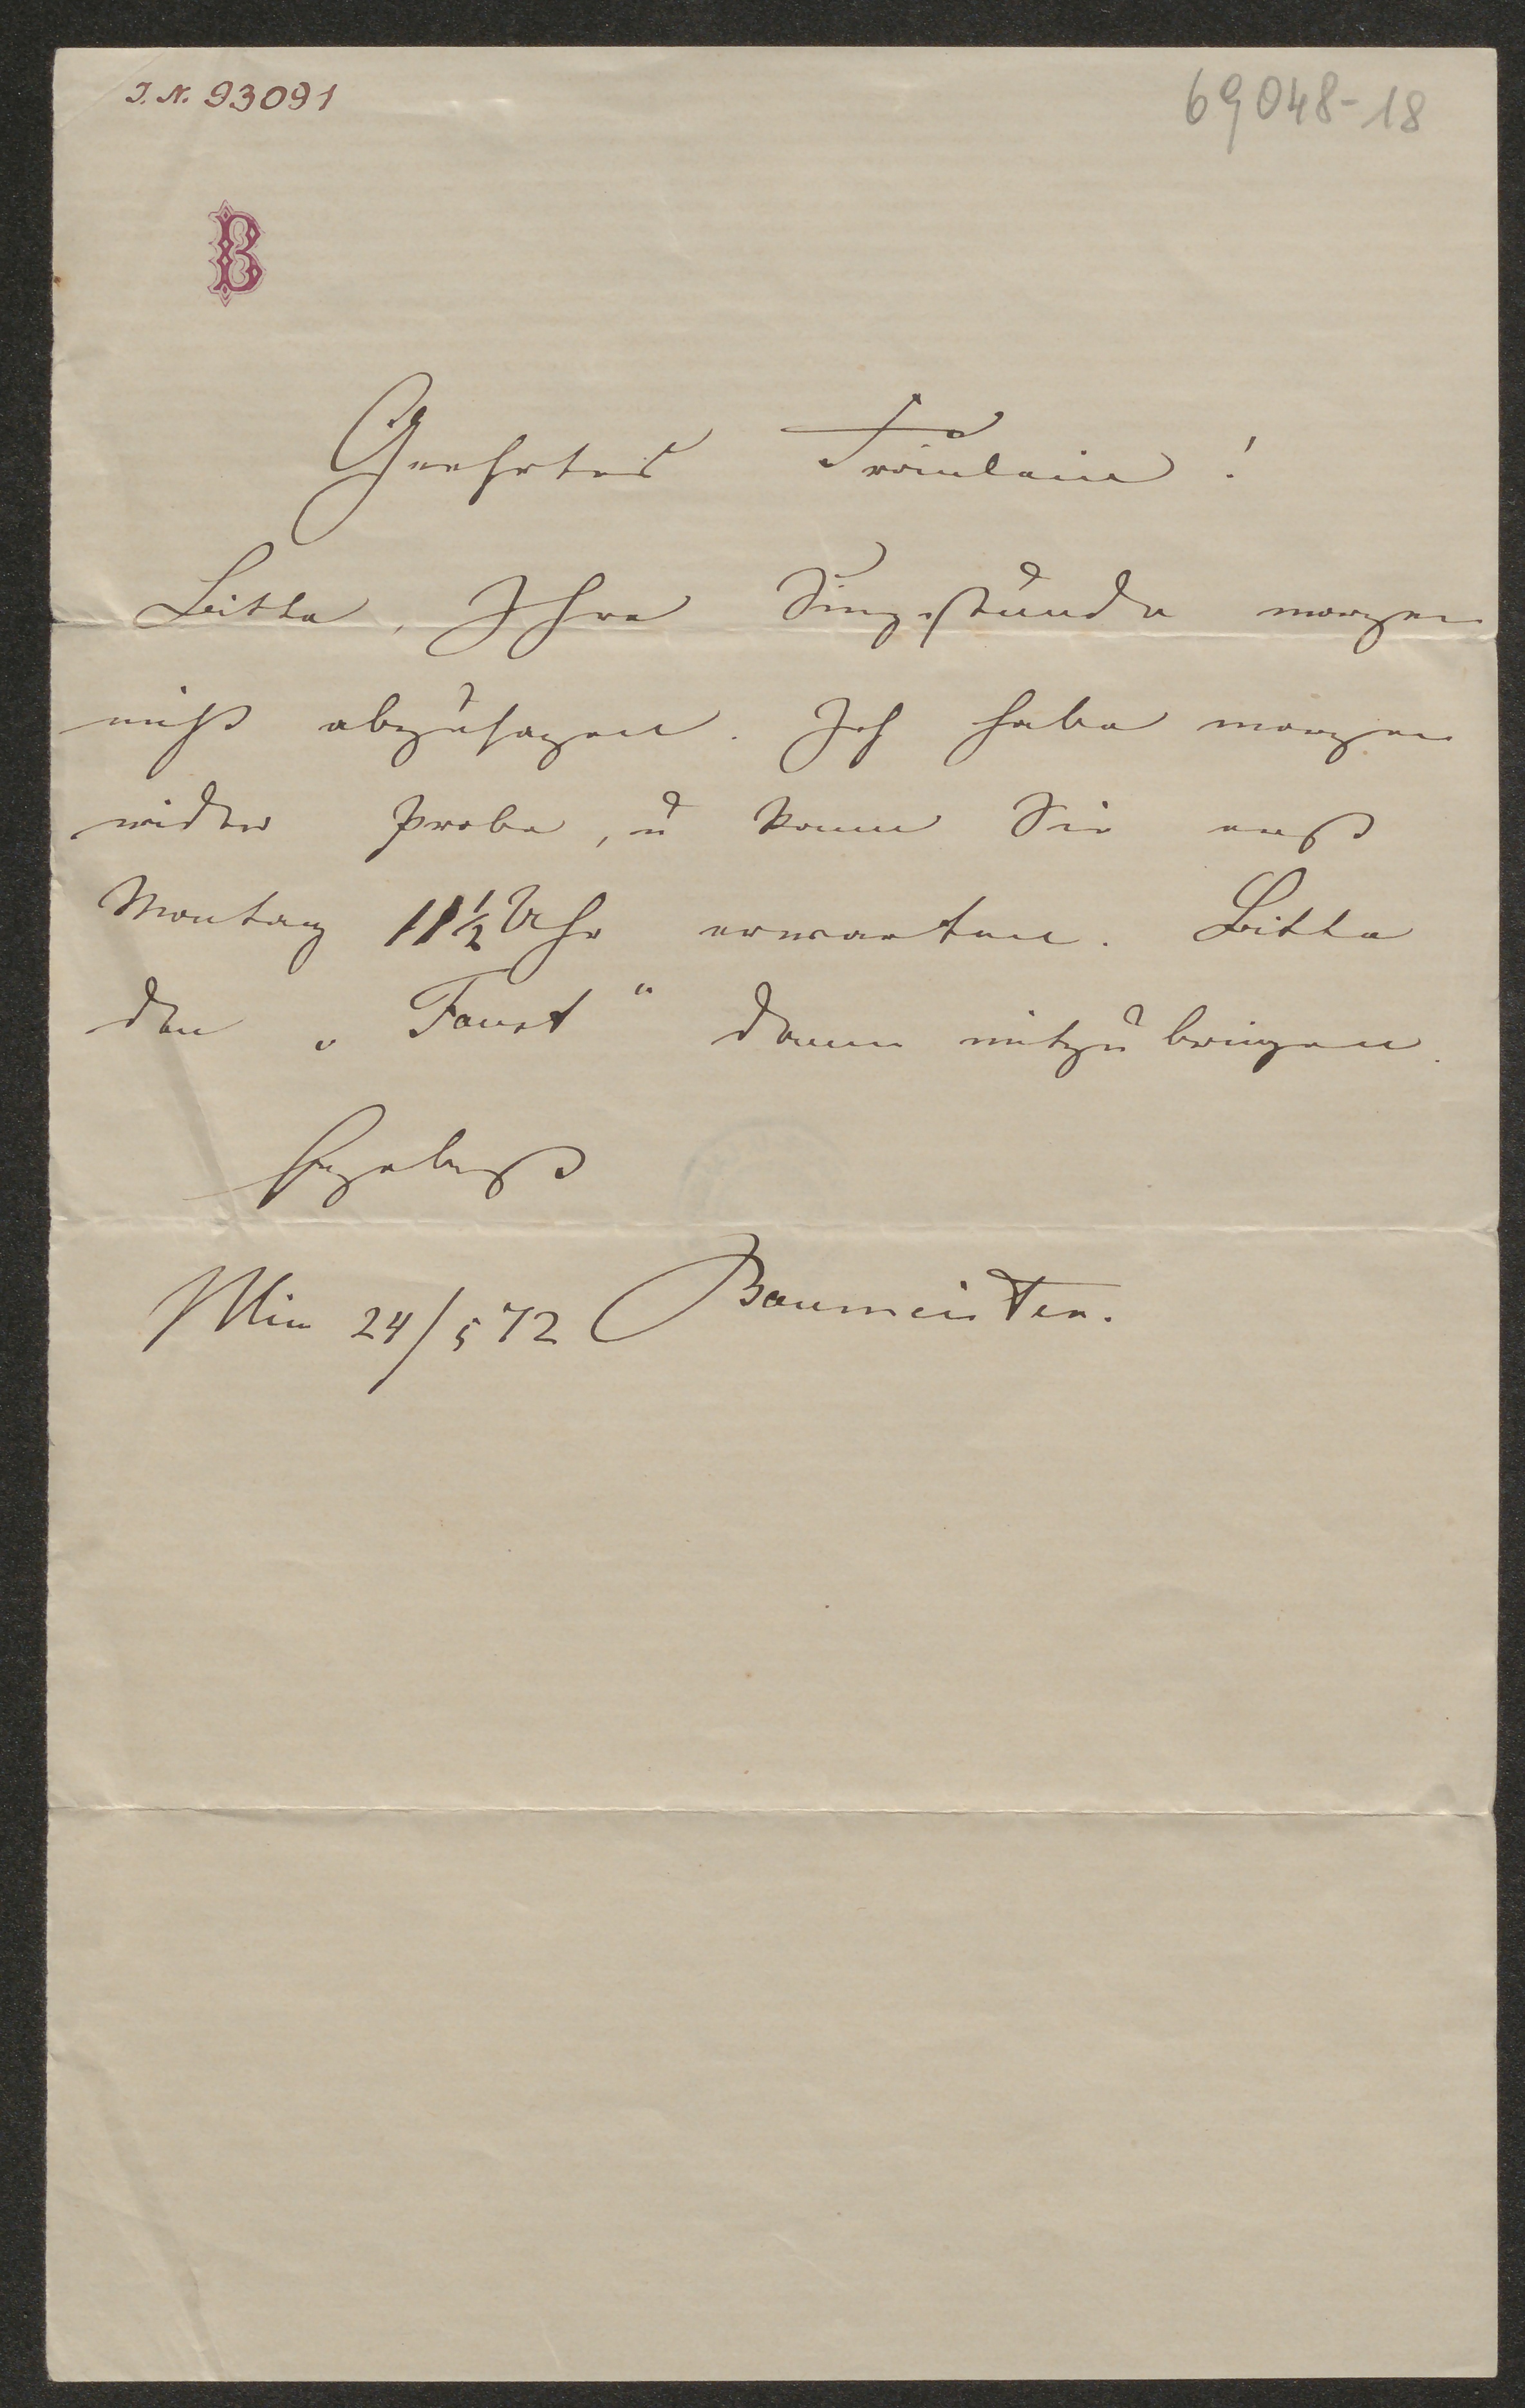 I. N. 93091
69048-18
B
Geehrtes Fräulein!
Bitte, Ihre Singstunde morgen
nicht abzusagen. Ich habe morgen
wider Probe, u kann Sie erst
Montag 11½ Uhr erwarten. Bitte
den „Faust“ dann mitzubringen.
Ergebenst
Wien 24/5 72 Baumeister.